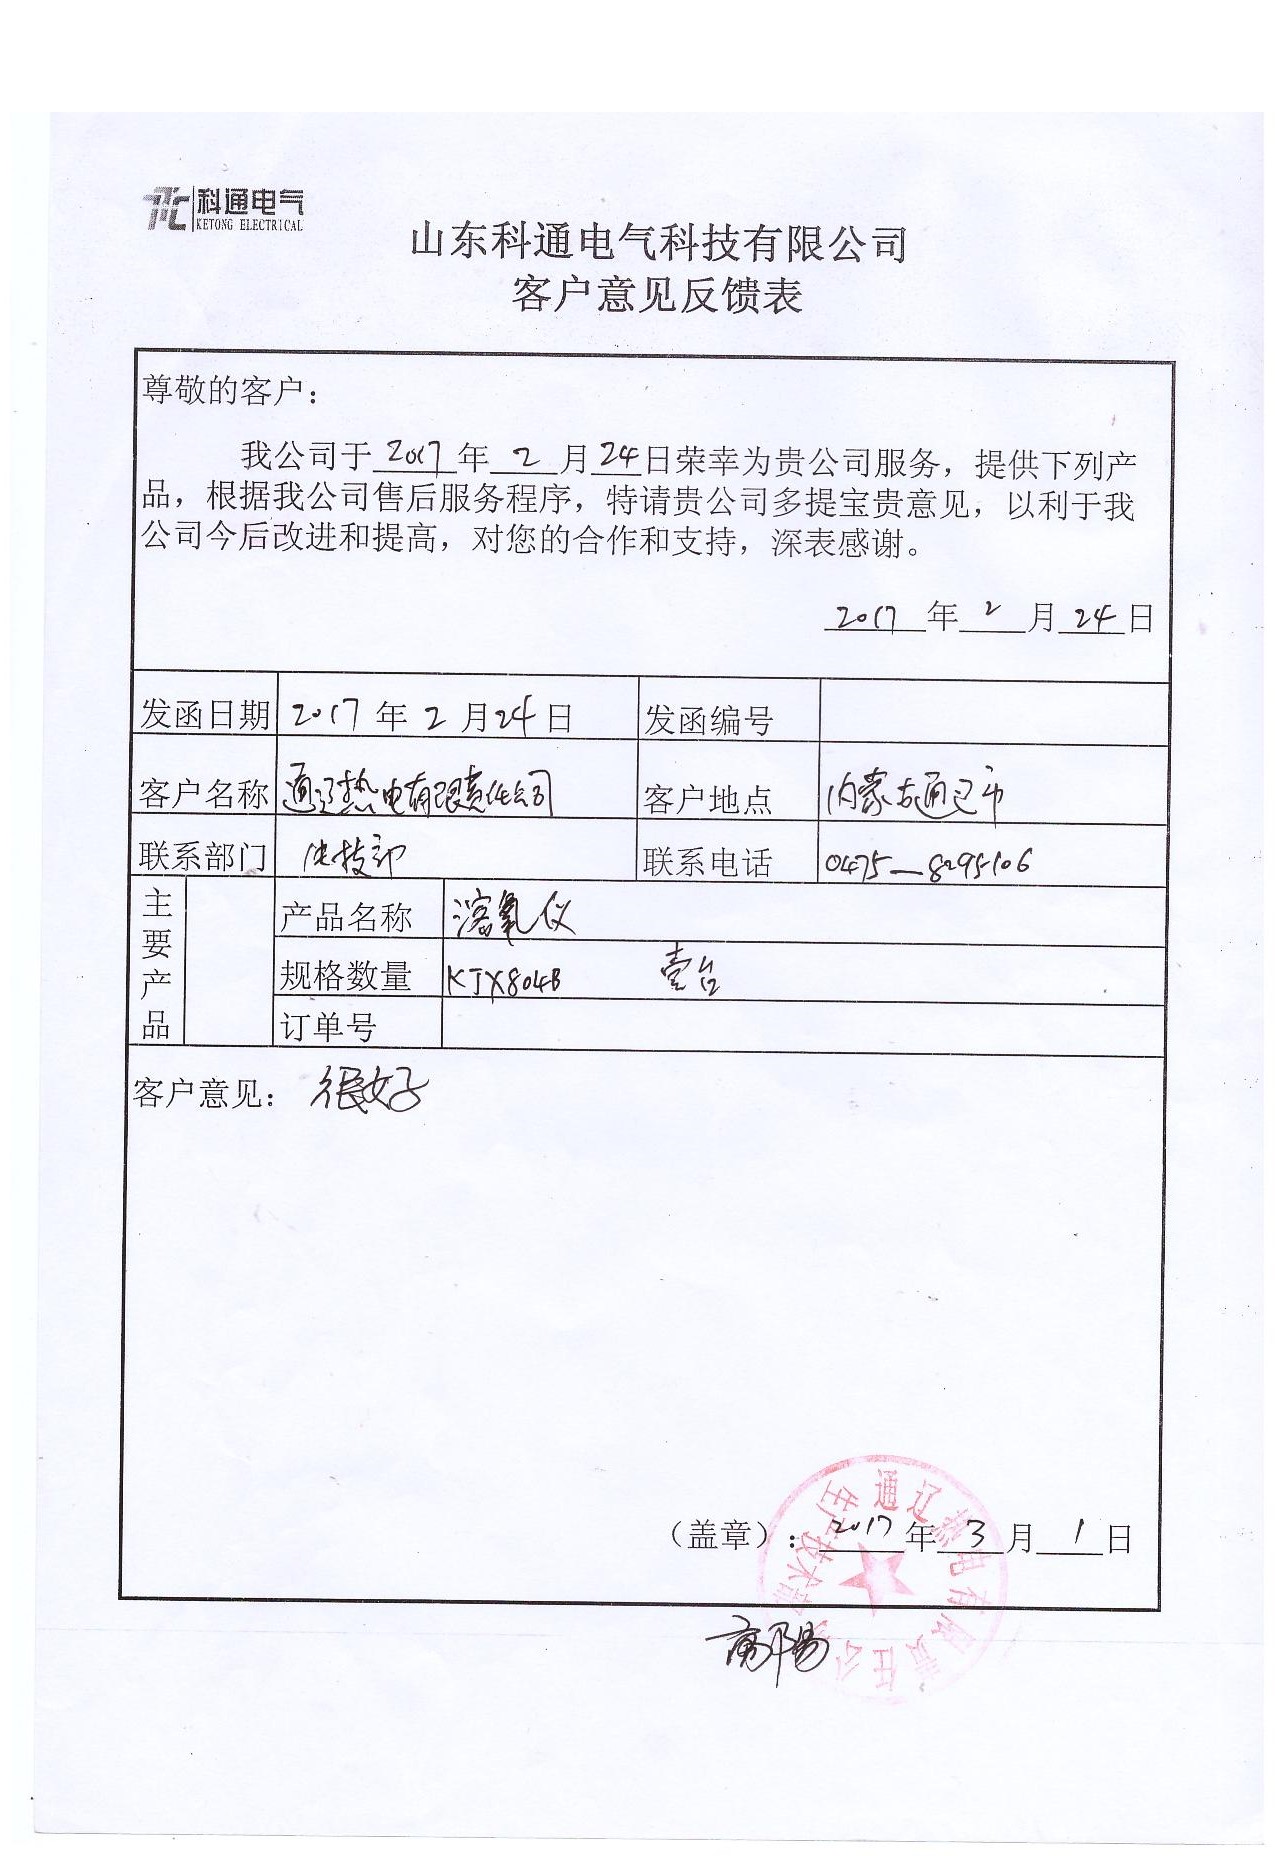 科通电气
KETONG ELECTRICAL
山东科通电气科技有限公司
客户意见反馈表
尊敬的客户：
我公司于 2017 年 2 月 24 日荣幸为贵公司服务，提供下列产
品，根据我公司售后服务程序，特请贵公司多提宝贵意见，以利于我
公司今后改进和提高，对您的合作和支持，深表感谢。
2017 年 2 月 24 日
发函日期 2017 年 2 月 24 日 发函编号
客户名称 通辽热电有限责任公司 客户地点 内蒙古通辽市
联系部门 生技部 联系电话 0475—8295106
主要产品
产品名称 溶氧仪
规格数量 KJX804B 壹台
订单号
客户意见： 很好
（盖章）： 2017 年 3 月 1 日
通辽热电有限责任公司
生产技术部